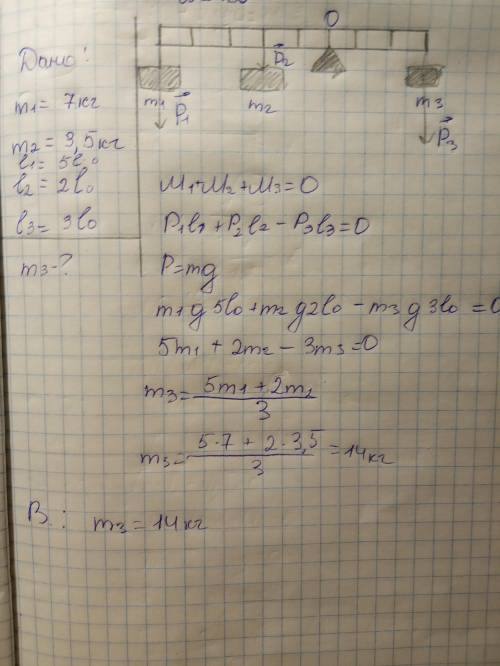 O
Дано:
m1 = 7кг
m2 = 3,5кг
l1 = 5l0
l2 = 2l0
l3 = 3l0
m3 - ?
m1 P1
m2 P2
m3 P3
M1+M2+M3=0
P1l1+P2l2-P3l3=0
P=mg
m1g5l0+m2g2l0-m3g3l0=0
5m1+2m2-3m3=0
m3=(5m1+2m2)/3
m3=(5·7+2·3,5)/3=14кг
В.: m3=14кг